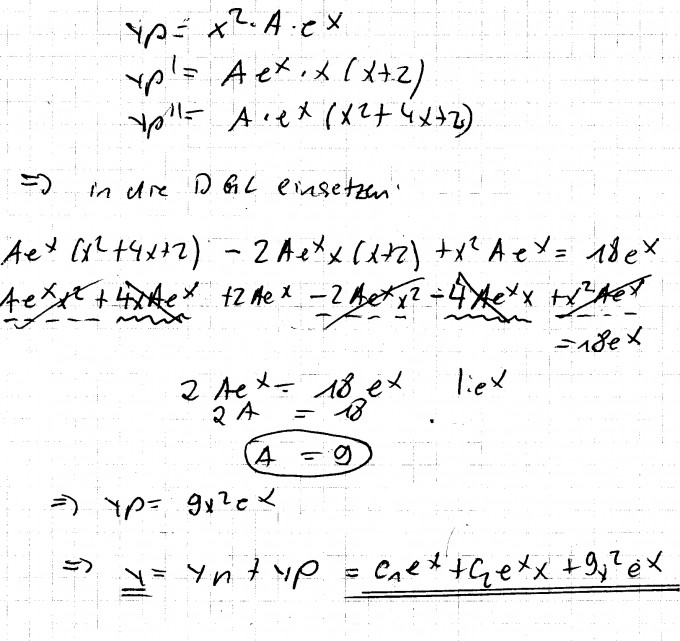 yp = x² · A · eˣ
yp' = A eˣ · x (x+2)
yp'' = A · eˣ (x² + 4x + 2)
=> in die DGL einsetzen:
Aeˣ (x² + 4x + 2) - 2 Aeˣ x (x+2) + x² Aeˣ = 18eˣ
Aeˣ x² + 4xAeˣ + 2Aeˣ - 2Aeˣ x² - 4Aeˣ x + x² Aeˣ
= 18eˣ
2 Aeˣ = 18 eˣ |: eˣ
2 A = 18
A = 9
=> yp = 9x² eˣ
=> y = yh + yp = C₁eˣ + C₂eˣx + 9x² eˣ